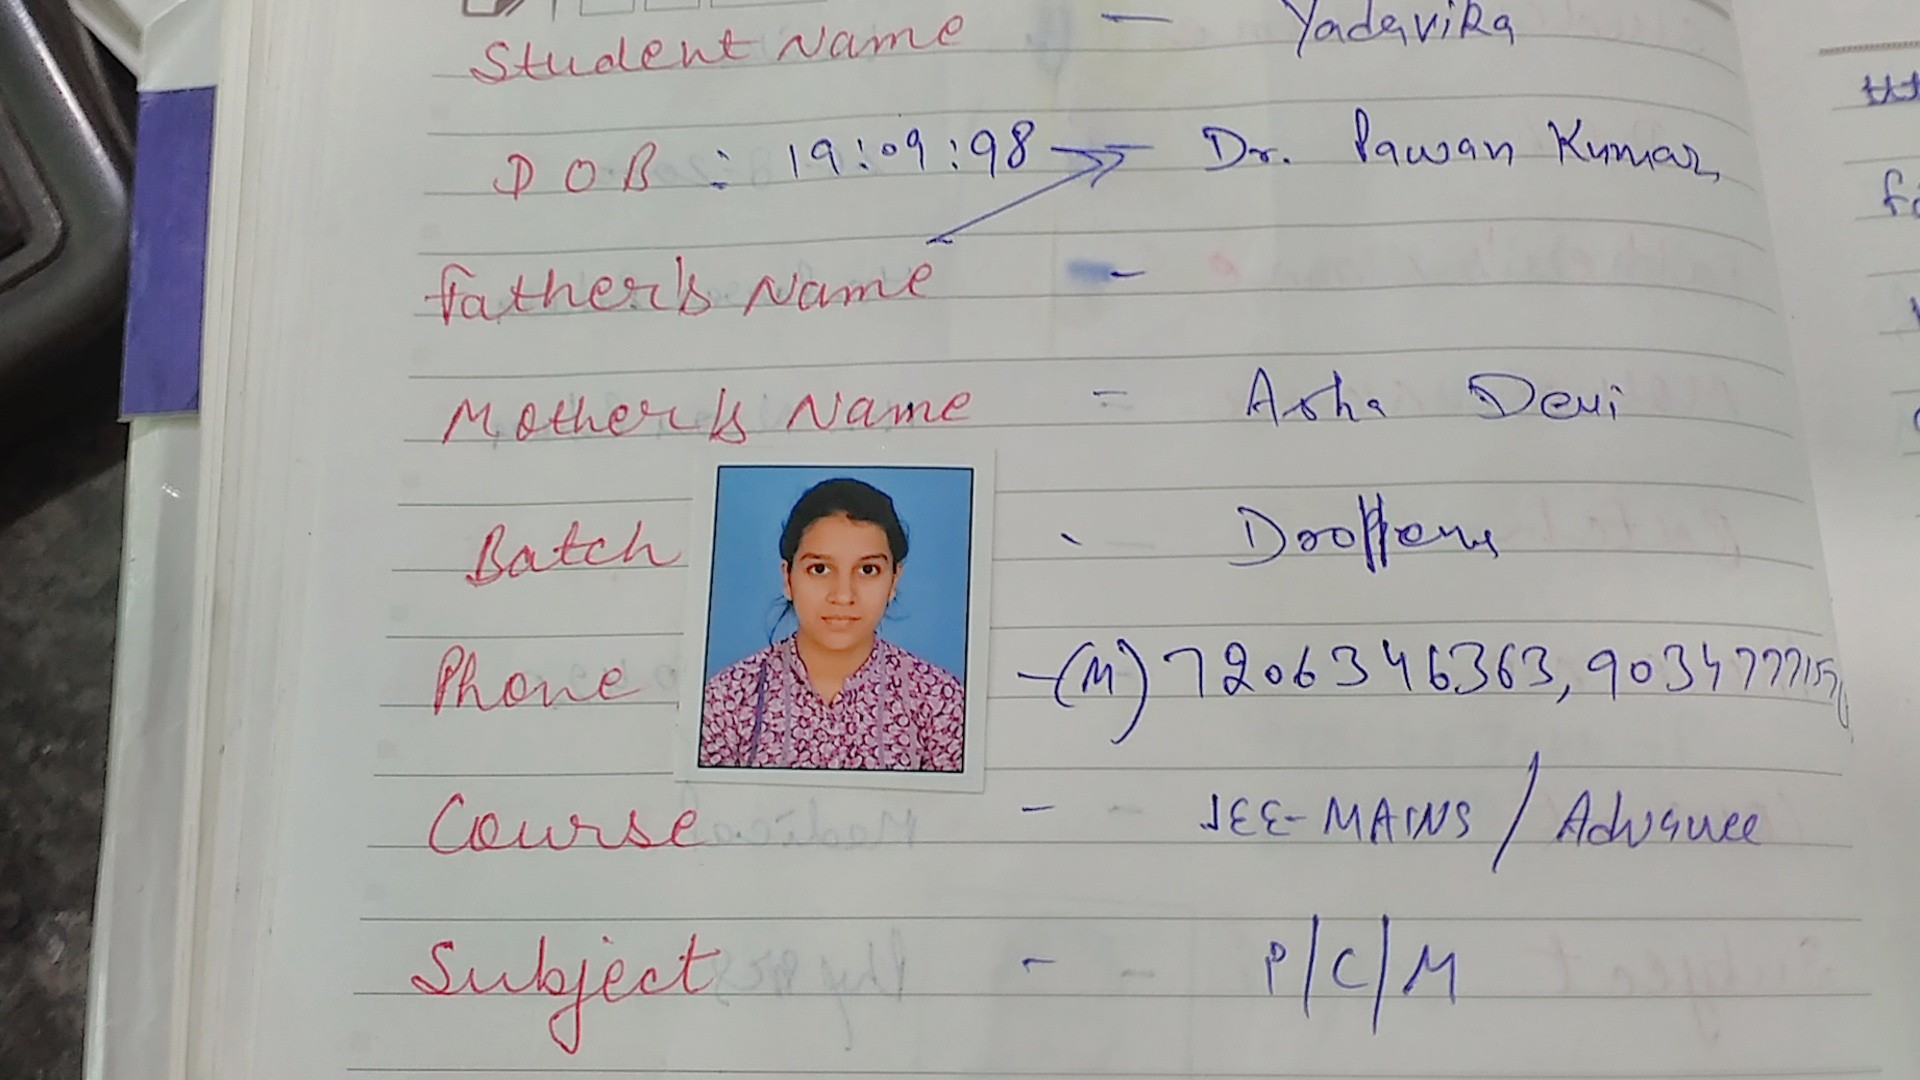 Student Name - Yadavika
DOB : 19:09:98 → Dr. Pawan Kumar
Father's Name -
Mother's Name = Asha Devi
Batch - Droppers
Phone -(M) 7206346363,
Course - JEE-MAINS / Advance
Subject - P/C/M